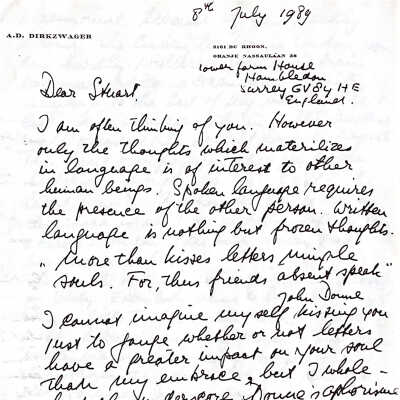 8th July 1989
A.D. DIRKZWAGER
3161 DC RHOON.
ORANJE NASSAULAAN 38
Lower farm House
Hambledon
Surrey GV84 HE
England.
Dear Stuart.
I am often thinking of you. However
only the thoughts which materilizes
in language is of interest to other
human beings. Spoken language requires
the presence of the other person. Written
language is nothing but frozen thoughts.
"More than kisses letters mingle
souls. For, thus friends absent speak"
John Donne
I cannot imagine myself kissing you
just to gauge whether or not letters
have a greater impact on your soul
than my embrace, but I whole-
underscore Donne's aphorism